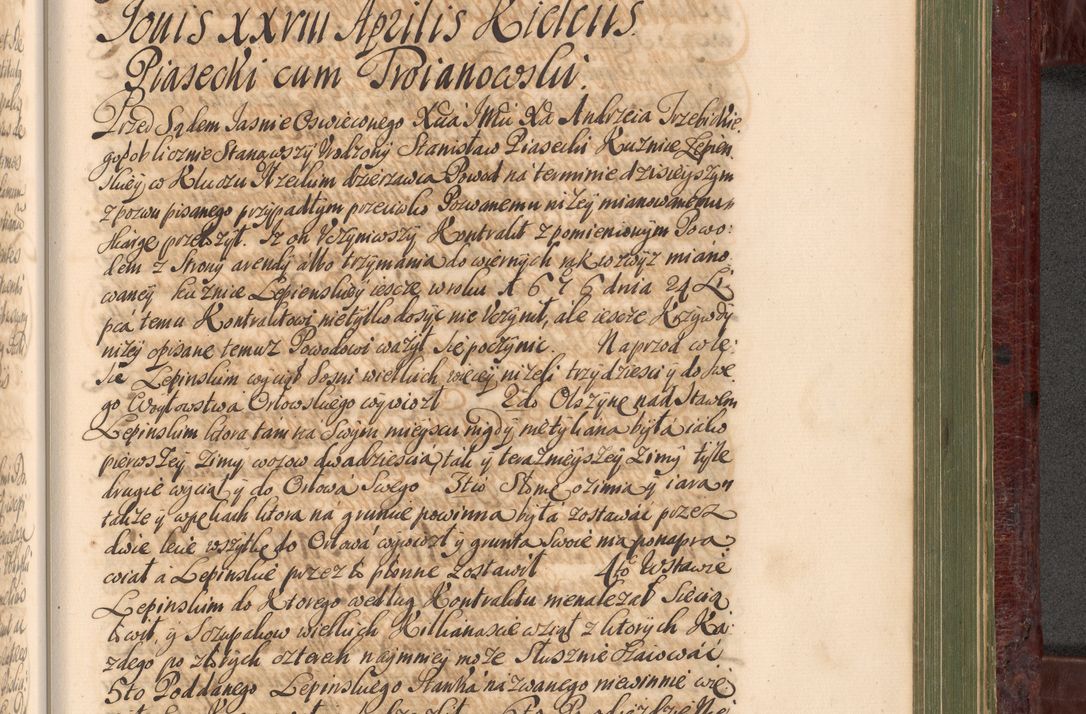 Jouis XXVIII Aprilis Kielciis.
Piasecki cum Troianowski.
Przed Sądem Jasnie Oswieconego Xdza JMci Xdza Andrzeia Trzebickie
go osoblicznie Stanąwszy Urodzony Stanisław Piasecki Kuznice Lepien
skiey w Kluczu dzierzawca Powod na terminie dzisieyszym
z pozwu pisanego przypadłym przeciwko Pozwanemu nizey mianowanemu
skargę przełozył. Iz on Uczyniwszy Kontrakt z pomienionym Powo:
dem z Strony arendy albo trzymania do wiernych rąk wzwyz miano
waney kuznice Lepienskiey ieszcze w roku 1676 dnia 24 Li
pca temu Kontraktowi nietylko dosyc nie Uczynił, ale ieszcze Krzywdy
nizey opisane temuz Powodowi wazył się poczynic. Naprzod w le:
sie Lepinskim wyciął Sosni wielkich więcey nizeli trzydziesci y do swe
go Woytowstwa Orłowskiego wywiozł 2do Olszynę nad Stawem
Lepinskim ktora tam na Swym mieyscu nigdy nietykana była iako
pierwszey zimy wozow dwadziescia, tak y teraznieyszey zimy tyle
drugie wyciął y do Orłowa Swego 3tio Słomę ozimią y iarą
także y w pękach ktora na gruncie powinna była zostawac przez
dwie lecie wszytkę do Orłowa wywiozł y grunta Swoie ma ponapra
wiał a Lepinskie przez to płonne zostawił 4to W stawie
Lepinskim do Ktorego według Kontraktu nienalezał Siecią
łowił, y Sczupakow wielkich Kilkanascie wziął z ktorych Ka:
zdego po złotych czterech naymniey moze Słusznie szacować
5to Poddanego Lepinskiego Hanka nazwanego niewinnie wię